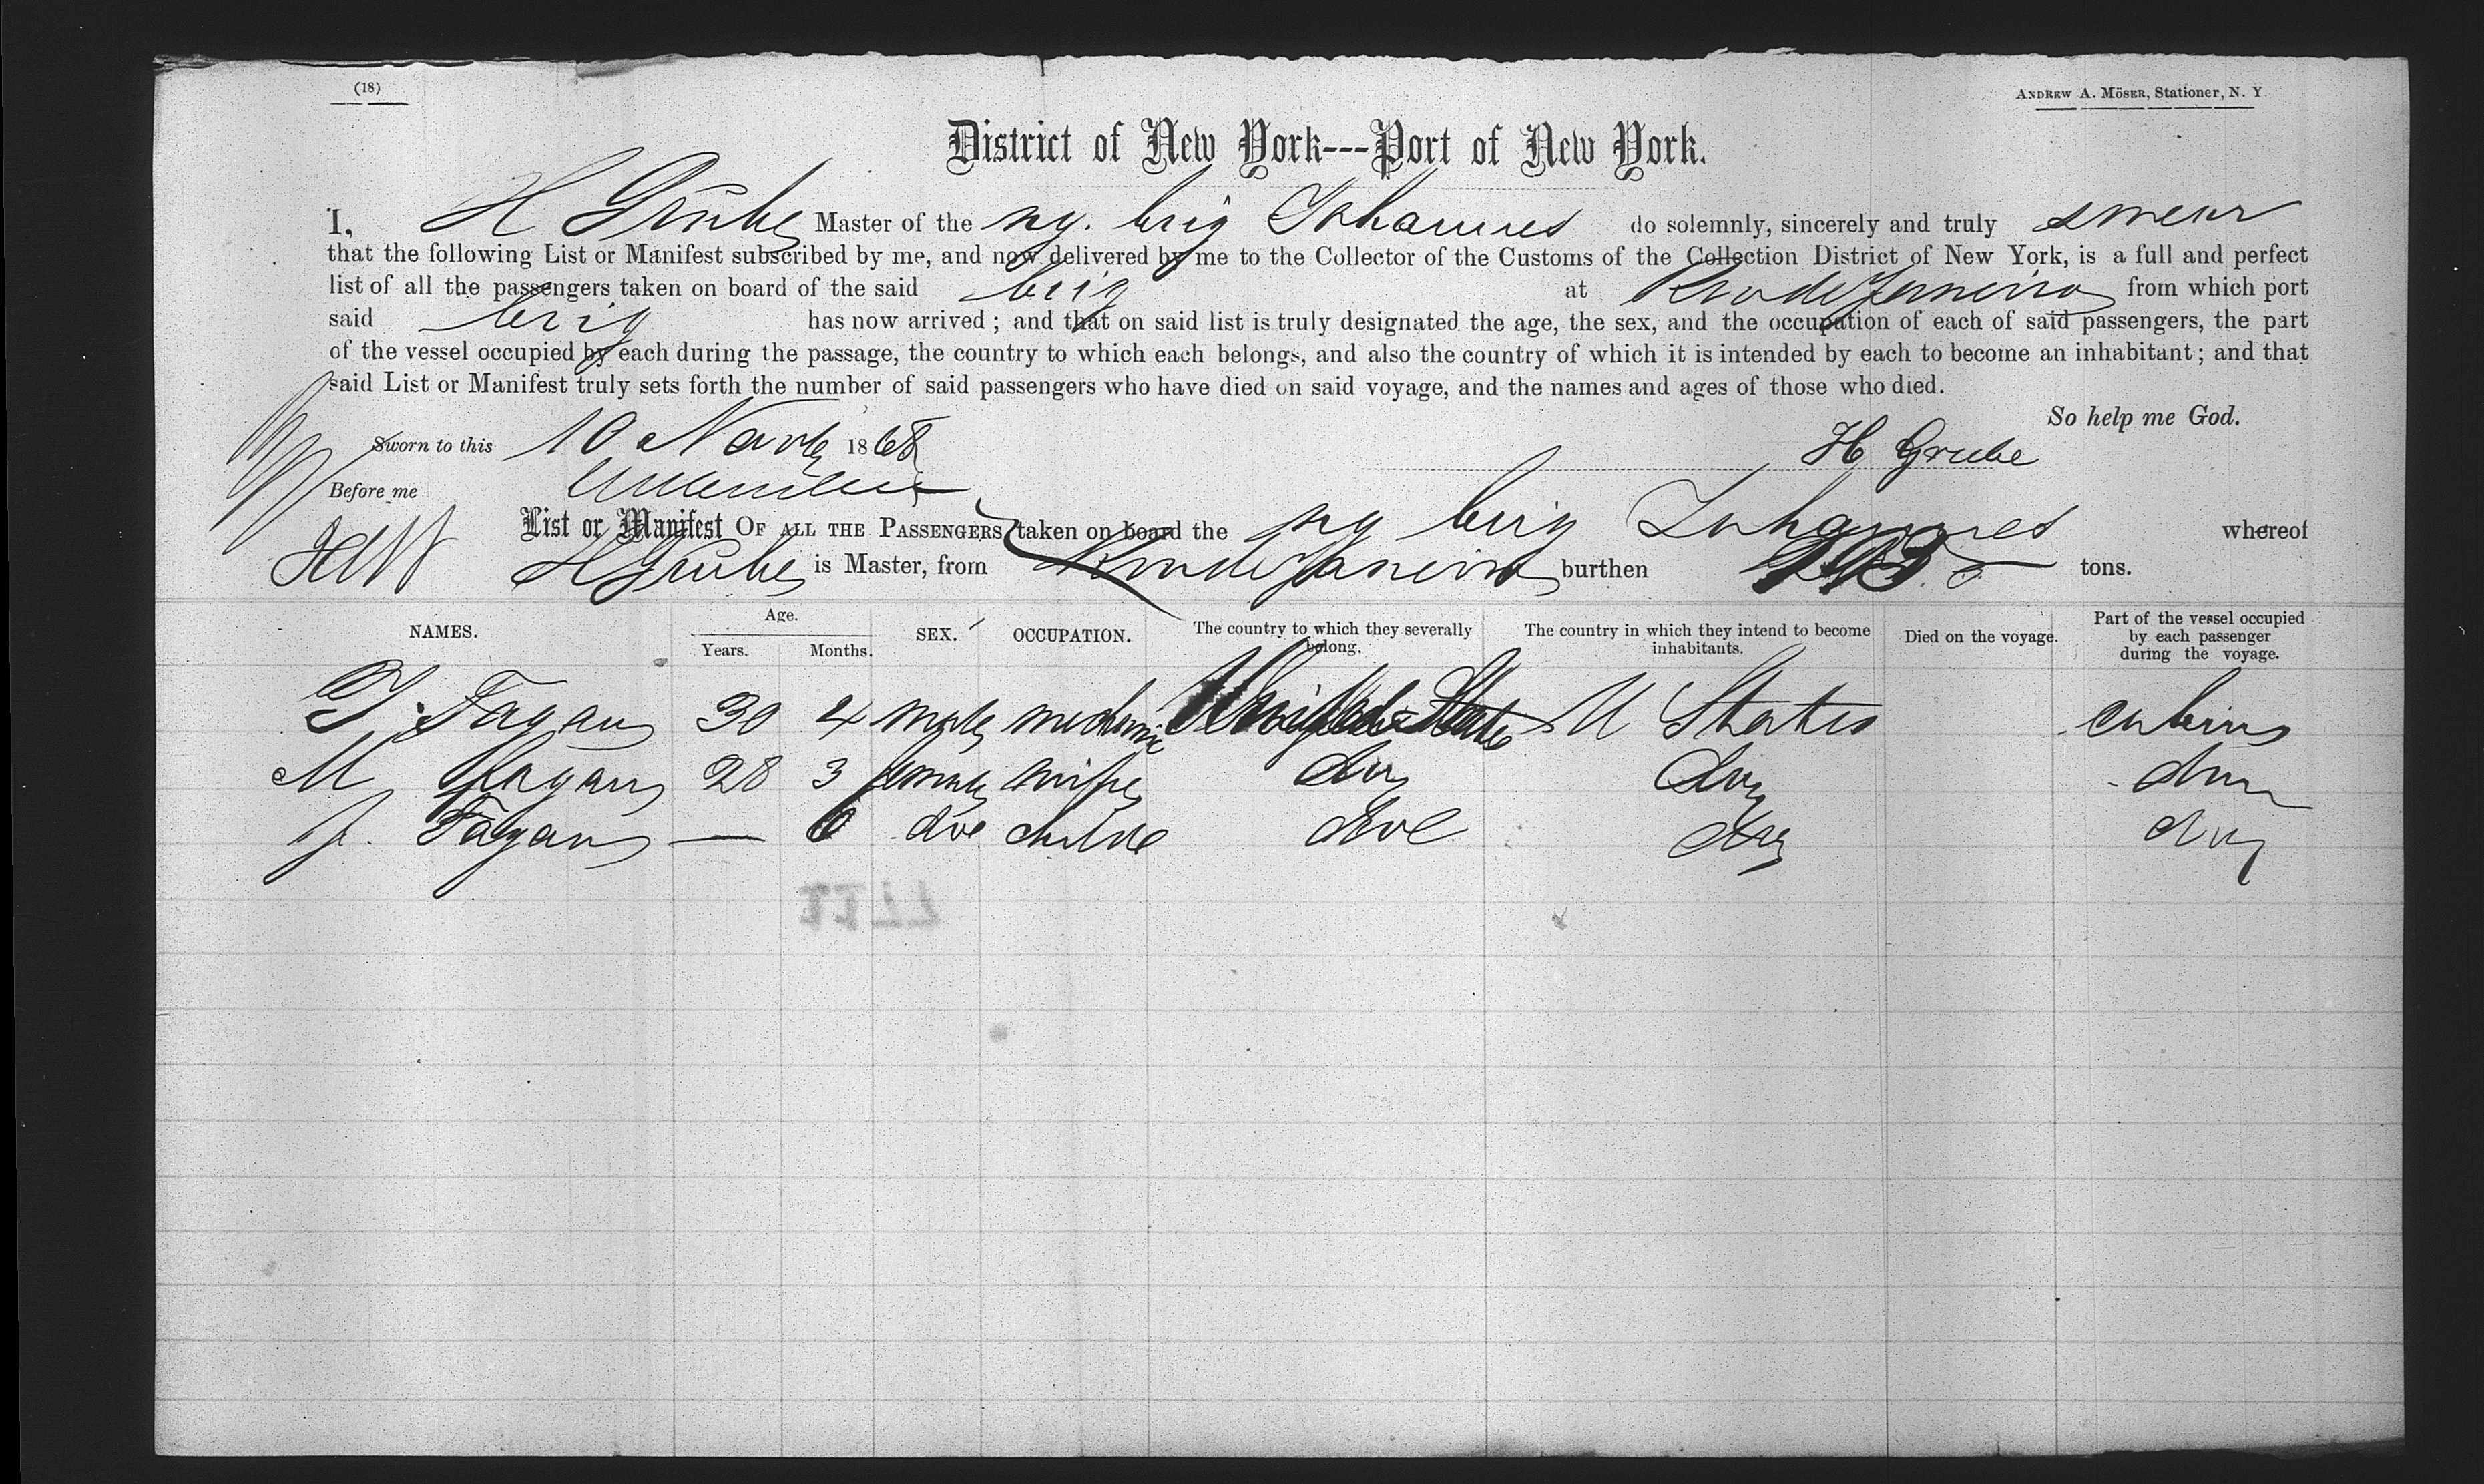 (18)
ANDREW A. MÖSER, Stationer, N. Y
District of New York---Port of New York.
I, H Grube Master of the ng. brig Johannes do solemnly, sincerely and truly swear
that the following List or Manifest subscribed by me, and now delivered by me to the Collector of the Customs of the Collection District of New York, is a full and perfect
list of all the passengers taken on board of the said brig at Rio de Janeiro from which port
said brig has now arrived; and that on said list is truly designated the age, the sex, and the occupation of each of said passengers, the part
of the vessel occupied by each during the passage, the country to which each belongs, and also the country of which it is intended by each to become an inhabitant; and that
said List or Manifest truly sets forth the number of said passengers who have died on said voyage, and the names and ages of those who died.
So help me God.
Sworn to this 10 Novb 1868
H Grube
Before me
List or Manifest OF ALL THE PASSENGERS taken on board the ng brig Johannes whereof
H Grube is Master, from Rio de Janeiro burthen tons.
NAMES. Age. Years. Months. SEX. OCCUPATION. The country to which they severally belong. The country in which they intend to become inhabitants. Died on the voyage. Part of the vessel occupied by each passenger during the voyage.
T. Fagan 30 4 male mechanic United States U States cabin
M Fagan 28 3 female wife do do do
J. Fagan — 6 do child do do do